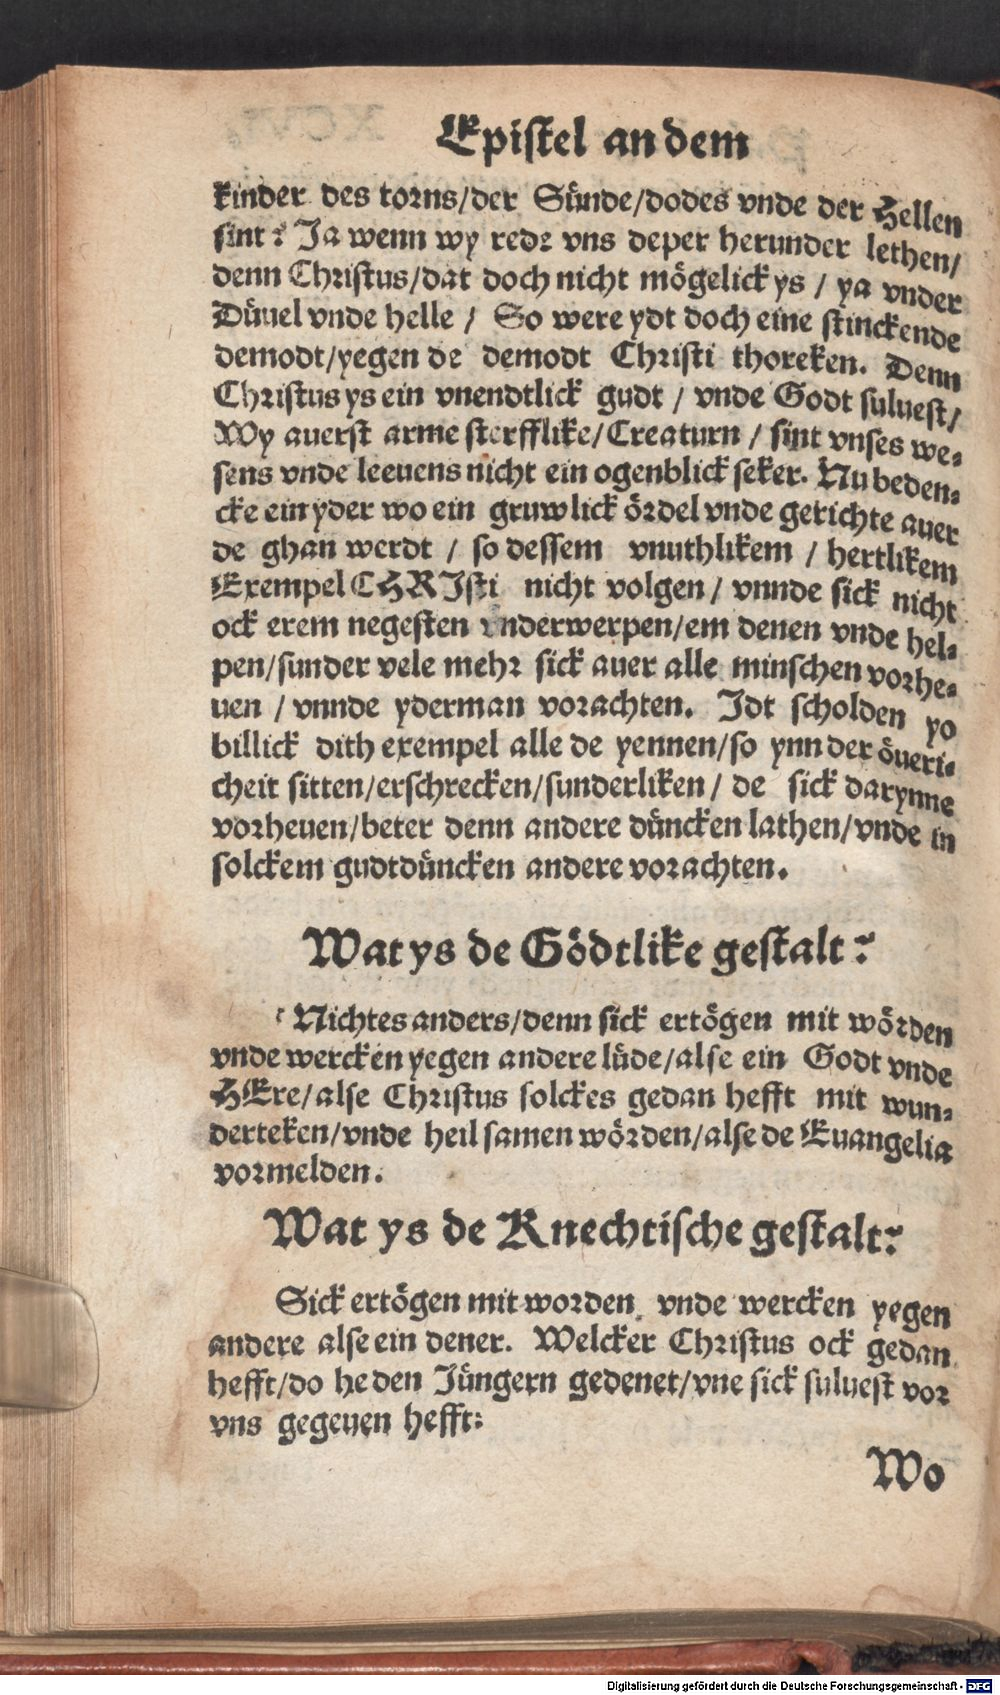 Epistel an dem
kinder des torns/der Sünde/dodes vnde der Hellen
sint? Ja wenn wy rede vns deper herunder lethen/
denn Christus/dat doch nicht mögelick ys / ya vnder
Düuel vnde helle / So were ydt doch eine stinckende
demodt/yegen de demodt Christi thoreken. Denn
Christus ys ein vnendtlick gudt / vnde Godt suluest/
Wy auerst arme sterfflike/Creaturn / sint vnses we-
sens vnde leeuens nicht ein ogenblick seker. Nu beden-
cke ein yder wo ein gruwlick ördel vnde gerichte auer
de ghan werdt / so dessem vnuthlikem / hertlikem
Exempel CHRIsti nicht volgen / vnnde sick nicht
ock erem negesten vnderwerpen/em denen vnde hel-
pen/sunder vele mehr sick auer alle minschen vorhe-
uen / vnnde yderman vorachten. Idt scholden yo
billick dith exempel alle de yennen/so ynn der öueri-
cheit sitten/erschrecken/sunderliken / de sick darynne
vorheuen/beter denn andere düncken lathen/vnde in
solckem gudtdüncken andere vorachten.
Wat ys de Gödtlike gestalt?
Nichtes anders/denn sick ertögen mit wörden
vnde wercken yegen andere lüde/alse ein Godt vnde
HEre/alse Christus solckes gedan hefft mit wun-
derteken/vnde heilsamen wörden/alse de Euangelia
vormelden.
Wat ys de Knechtische gestalt?
Sick ertögen mit worden vnde wercken yegen
andere alse ein dener. Welcker Christus ock gedan
hefft/do he den Jüngern gedenet/vne sick suluest vor
vns gegeuen hefft:
Wo
Digitalisierung gefördert durch die Deutsche Forschungsgemeinschaft - DFG